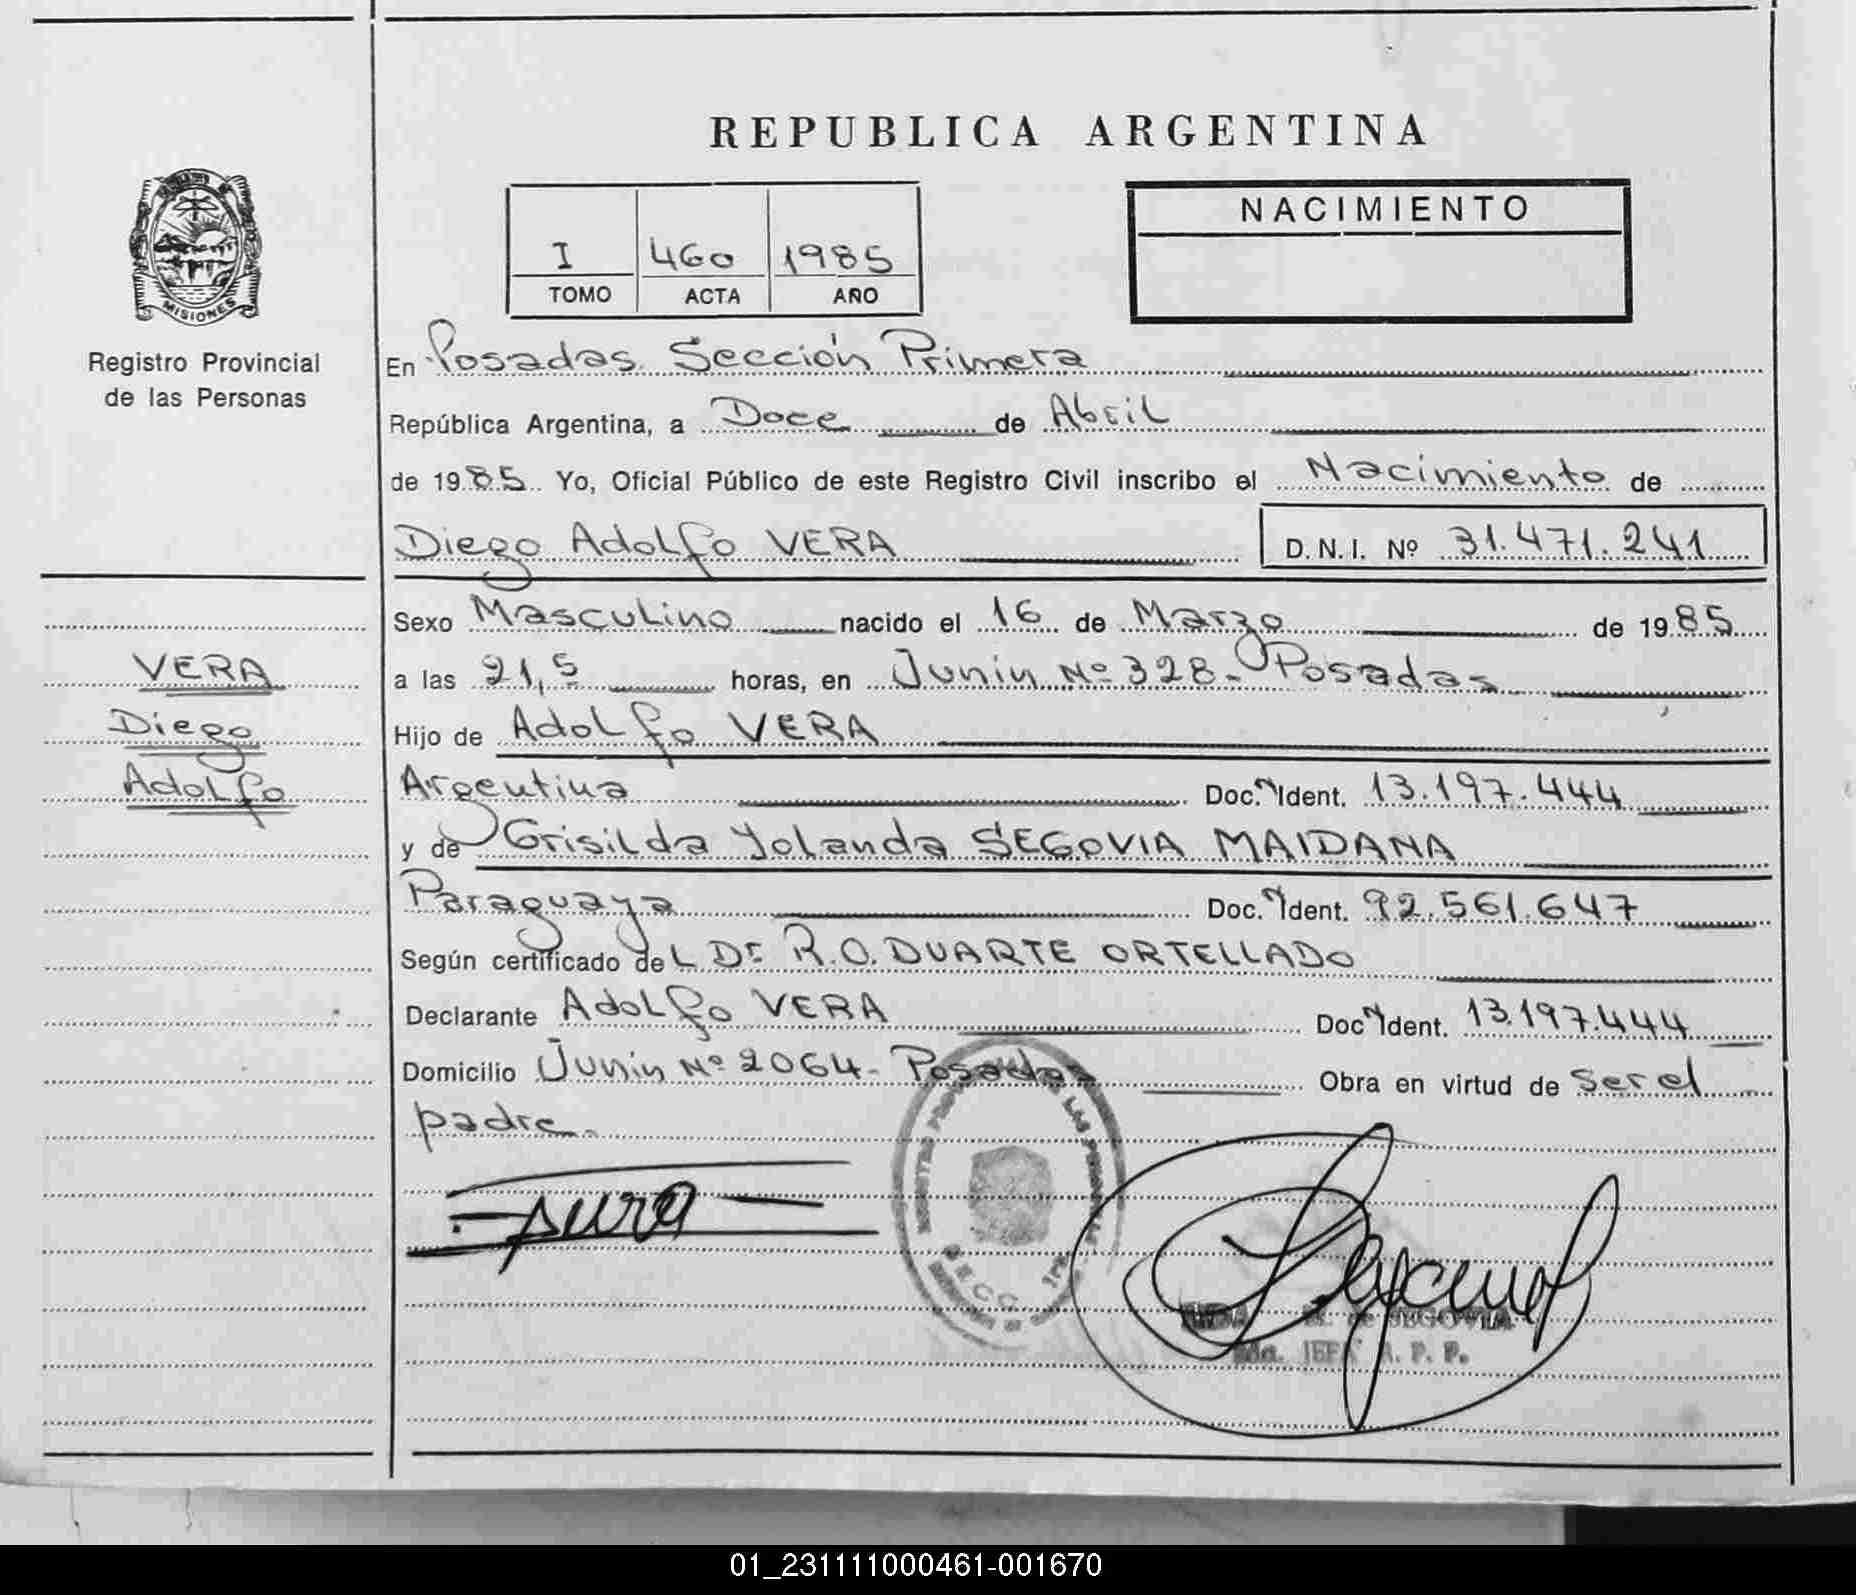 REPUBLICA ARGENTINA
MISIONES
Registro Provincial
de las Personas
I 460 1985
TOMO ACTA AÑO
NACIMIENTO
En Posadas Sección Primera
República Argentina, a Doce de Abril
de 1985 Yo, Oficial Público de este Registro Civil inscribo el Nacimiento de
Diego Adolfo VERA D.N.I. Nº 31.471.241
Sexo Masculino nacido el 16 de Marzo de 1985
a las 21,5 horas, en Junin Nº 328- Posadas
Hijo de Adolfo VERA
Argentina Doc. Ident. 13.197.444
y de Grisilda Yolanda SEGOVIA MAIDANA
Paraguaya Doc. Ident. 92.561.647
Según certificado deL Dr. R.O. DUARTE ORTELLADO
Declarante Adolfo VERA Doc Ident. 13.197.444
Domicilio Junin Nº 2064- Posadas Obra en virtud de ser el
padre.
VERA
Diego
Adolfo
de SEGOVIA
01_231111000461-001670